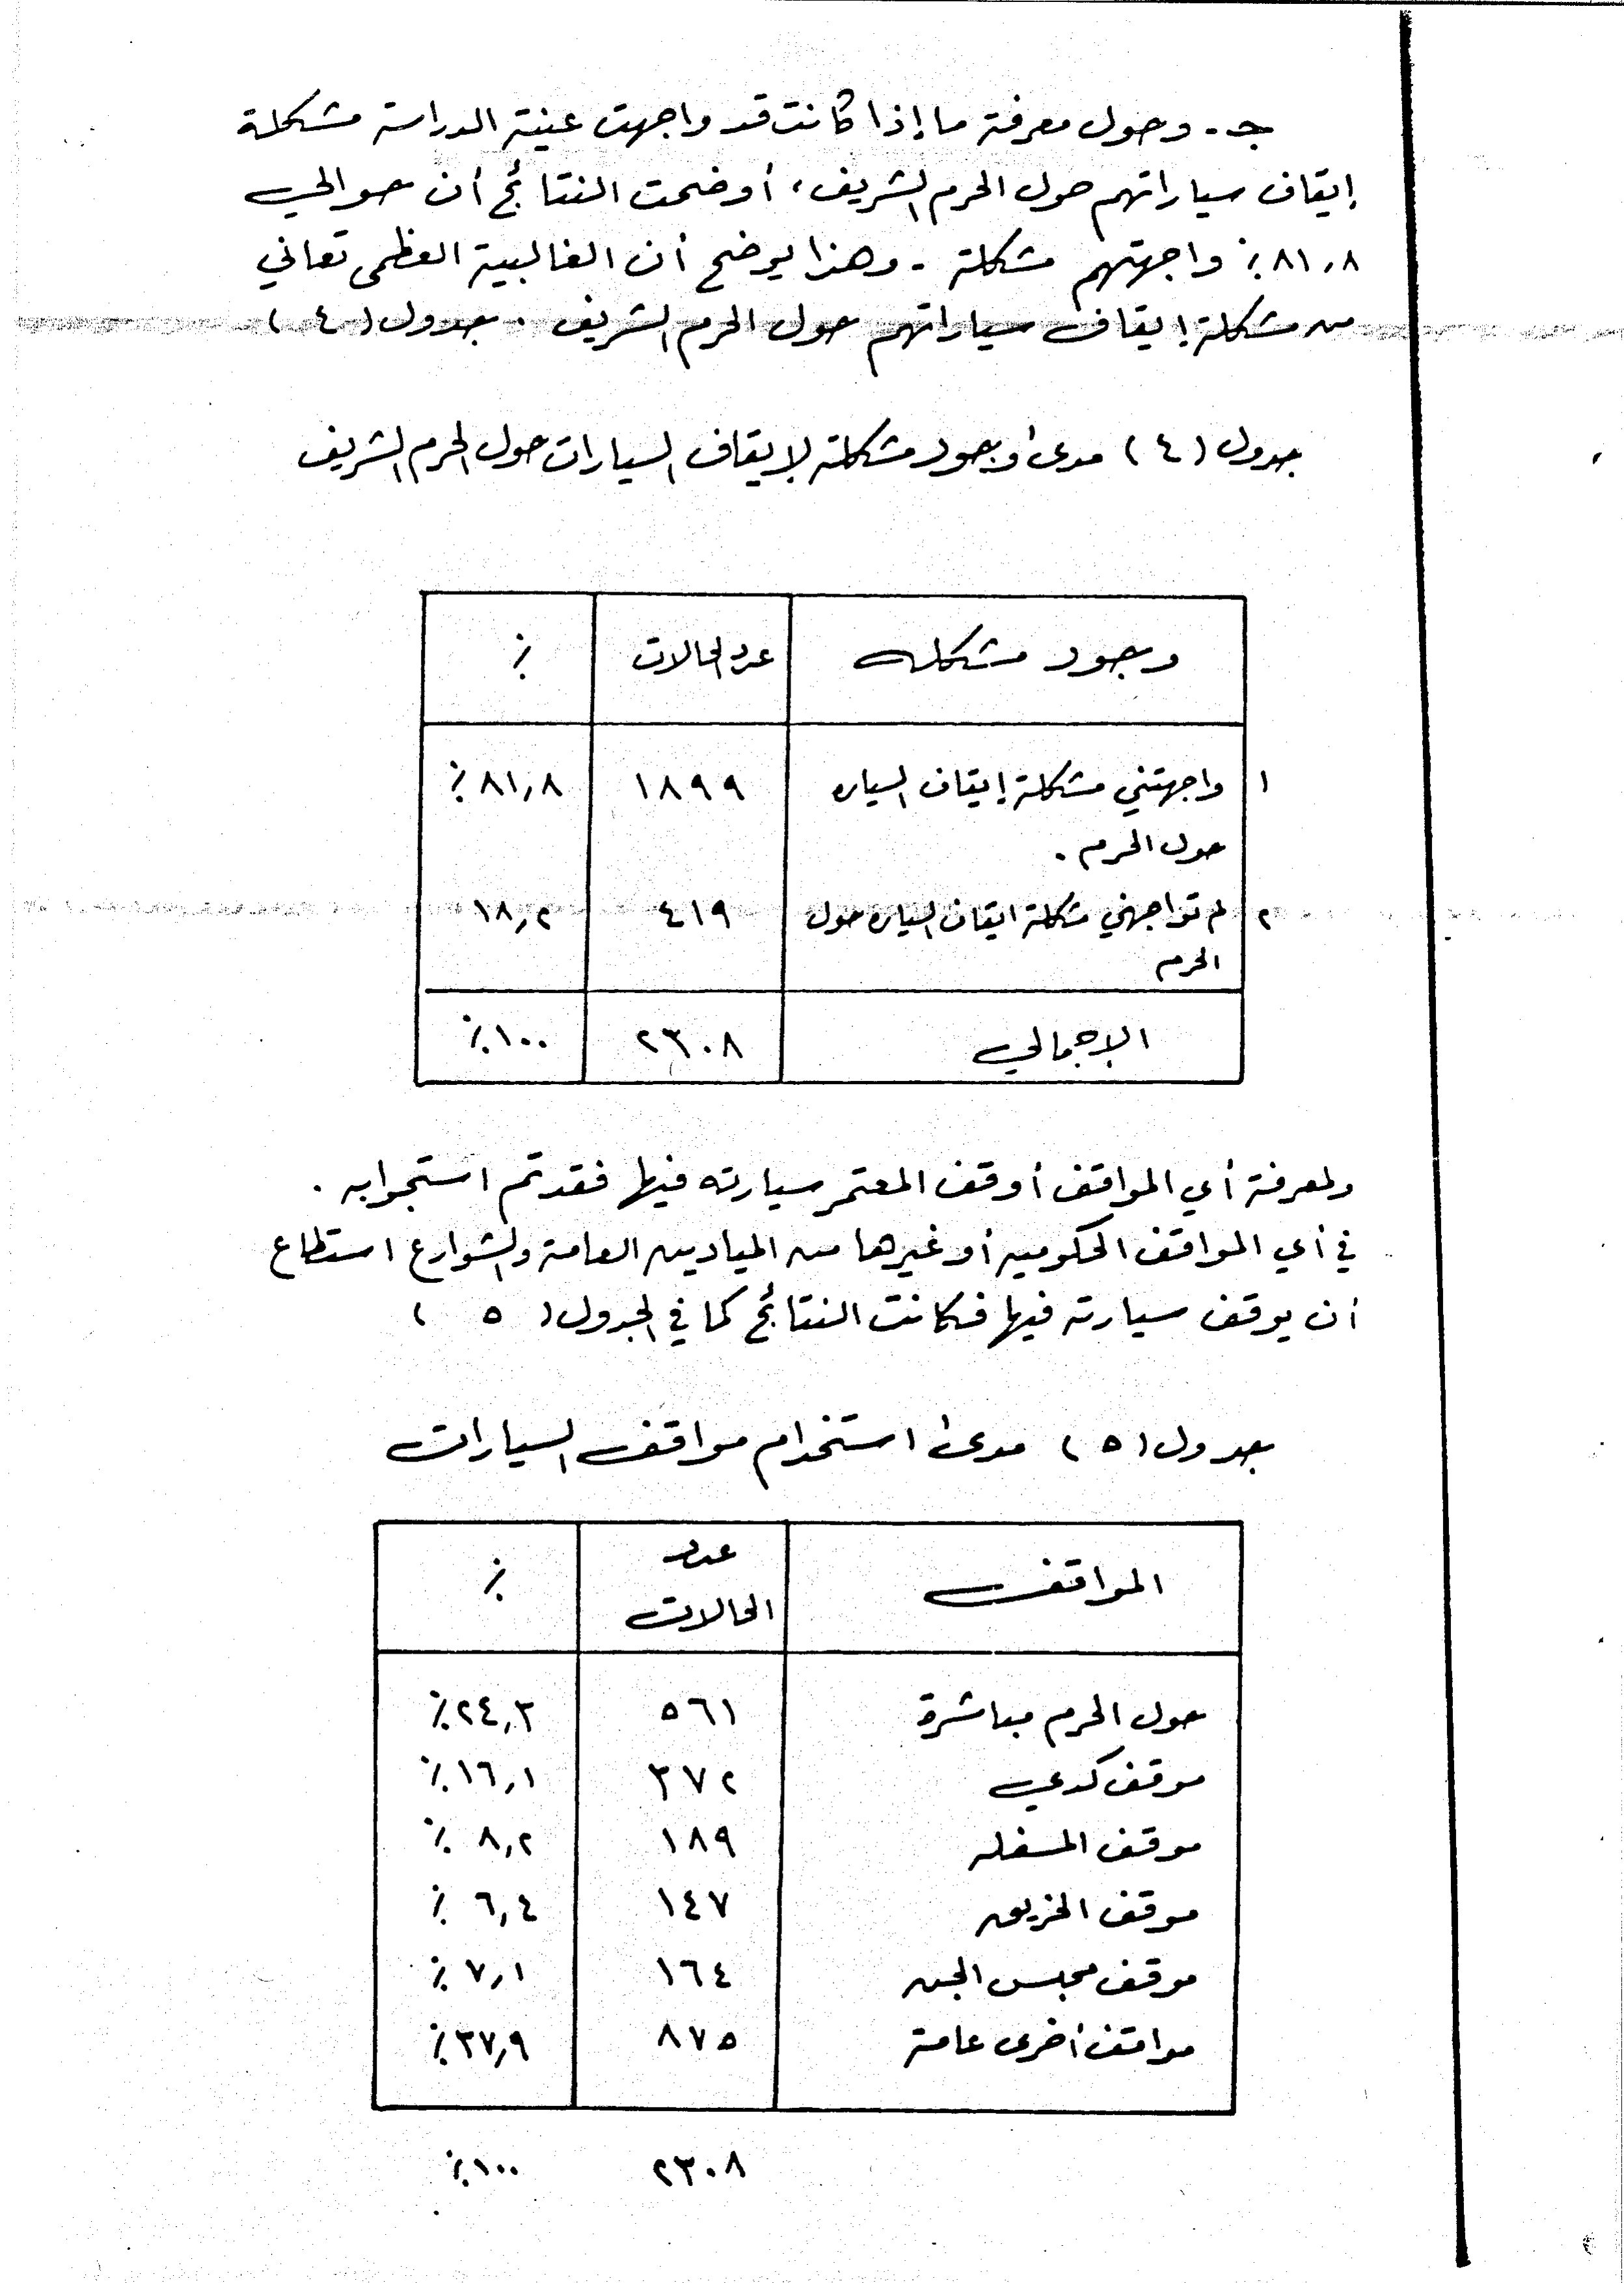 جـ - وحول معرفة ما إذا كانت قد واجهت عينة الدراسة مشكلة
إيقاف سياراتهم حول الحرم الشريف، أوضحت النتائج أن حوالي
٨١,٨٪ واجهتهم مشكلة - وهذا يوضح أن الغالبية العظمى تعاني
من مشكلة إيقاف سياراتهم حول الحرم الشريف . جدول (٤)
جدول (٤) مدى وجود مشكلة لإيقاف السيارات حول الحرم الشريف
وجود مشكله عدد الحالات ٪
١ واجهتني مشكلة إيقاف السياره ١٨٩٩ ٨١,٨٪
حول الحرم .
٢ لم تواجهني مشكلة ايقاف السياره حول ٤١٩ ١٨,٢
الحرم
الإجمالي ٢٣٠٨ ١٠٠٪
ولمعرفة أي المواقف أوقف المعتمر سيارته فيها فقد تم استجوابه .
في أي المواقف الحكوميه أو غيرها من الميادين العامة والشوارع استطاع
أن يوقف سيارته فيها فكانت النتائج كما في الجدول ( ٥ )
جدول (٥) مدى استخدام مواقف السيارات
المواقف عدد الحالات ٪
حول الحرم مباشرة ٥٦١ ٢٤,٣٪
موقف كدي ٣٧٢ ١٦,١٪
موقف المسفله ١٨٩ ٨,٢٪
موقف الخريق ١٤٧ ٦,٤٪
موقف محبس الجن ١٦٤ ٧,١٪
مواقف أخرى عامة ٨٧٥ ٣٧,٩٪
٢٣٠٨ ١٠٠٪